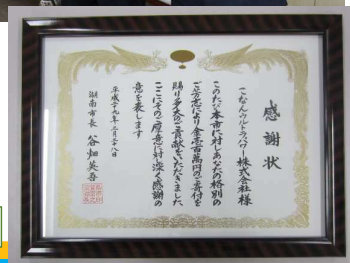 感謝状
こなんウルトラパワー株式会社様
このたび本市に対しあなたの格別の
ご芳志により金壱百萬円のご寄付を
賜り多大のご貢献をいただきました
ここにそのご厚意に対し深く感謝の
意を表します
平成二十九年三月二十八日
湖南市長 谷畑英吾